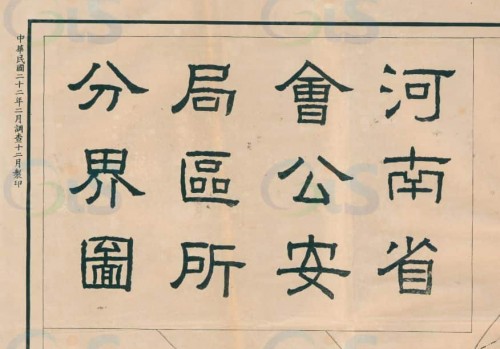 河南省
會公安
局區所
分界圖
中華民國二十二年二月調查十二月製印
GIS
GIS
GIS
GIS
GIS
GIS